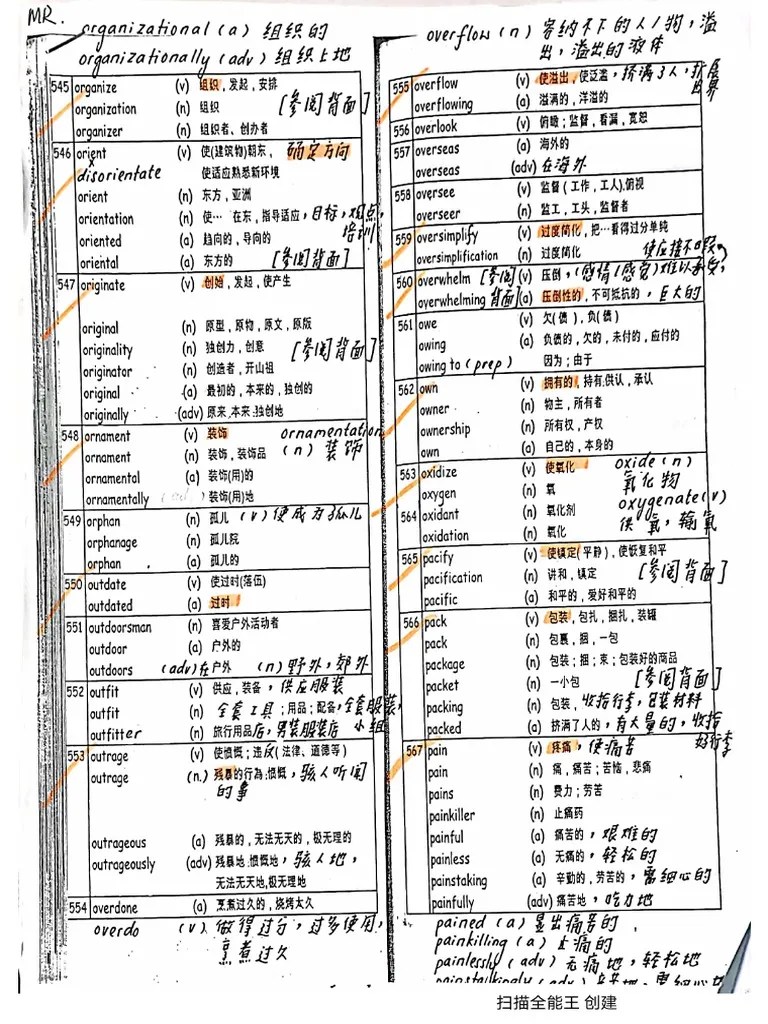 MR.
organizational (a) 组织的
organizationally (adv) 组织上地
545 organize (v) 组织，发起，安排
organization (n) 组织 [参阅背面]
organizer (n) 组织者、创办者
546 orient (v) 使(建筑物)朝东， 确定方向
disorientate 使适应熟悉新环境
orient (n) 东方，亚洲
orientation (n) 使…在东，指导适应，目标，观点，
培训
oriented (a) 趋向的，导向的
oriental (a) 东方的 [参阅背面]
547 originate (v) 创始，发起，使产生
original (n) 原型，原物，原文，原版
originality (n) 独创力，创意 [参阅背面]
originator (n) 创造者，开山祖
original (a) 最初的，本来的，独创的
originally (adv) 原来，本来，独创地
548 ornament (v) 装饰 ornamentation
ornament (n) 装饰，装饰品 (n) 装饰
ornamental (a) 装饰(用)的
ornamentally (ad ) 装饰(用)地
549 orphan (n) 孤儿 (v) 使成为孤儿
orphanage (n) 孤儿院
orphan (a) 孤儿的
550 outdate (v) 使过时(落伍)
outdated (a) 过时
551 outdoorsman (n) 喜爱户外活动者
outdoor (a) 户外的
outdoors (adv)在户外 (n) 野外，郊外
552 outfit (v) 供应，装备，供应服装
outfit (n) 全套工具；用品；配备，全套服装，
outfitter (n) 旅行用品店，男装服装店 小组
553 outrage (v) 使愤慨；违反(法律、道德等)
outrage (n.) 残暴的行為，愤慨，骇人听闻
的事
outrageous (a) 残暴的，无法无天的，极无理的
outrageously (adv) 残暴地，愤慨地，骇人地，
无法无天地，极无理地
554 overdone (a) 烹煮过久的，烧烤太久
overdo (v) 做得过分，过多使用，
烹煮过久
overflow (n) 容纳不下的人/物，溢
出，溢出的液体
555 overflow (v) 使溢出，使泛滥，挤满了人，扩展
出界
overflowing (a) 溢满的，洋溢的
556 overlook (v) 俯瞰；监督，看漏，宽恕
557 overseas (a) 海外的
overseas (adv) 在海外
558 oversee (v) 监督(工作，工人)，俯视
overseer (n) 监工，工头，监督者
559 oversimplify (v) 过度简化，把…看得过分单纯
oversimplification (n) 过度简化 使应接不暇
560 overwhelm [参阅 (v) 压倒，(感情/感觉)难以承受，
overwhelming 背面] (a) 压倒性的，不可抵抗的，巨大的
561 owe (v) 欠(债)，负(债)
owing (a) 负债的，欠的，未付的，应付的
owing to (prep) 因为；由于
562 own (v) 拥有的，持有，供认，承认
owner (n) 物主，所有者
ownership (n) 所有权，产权
own (a) 自己的，本身的
563 oxidize (v) 使氧化 oxide (n)
oxygen (n) 氧 氧化物
564 oxidant (n) 氧化剂 oxygenate (v)
oxidation (n) 氧化 供氧，输氧
565 pacify (v) 使镇定(平静)，使恢复和平
pacification (n) 讲和，镇定 [参阅背面]
pacific (a) 和平的，爱好和平的
566 pack (v) 包装，包扎，捆扎，装罐
pack (n) 包裹，捆，一包
package (n) 包装；捆；束；包装好的商品
packet (n) 一小包 [参阅背面]
packing (n) 包装，收拾行李，包装材料
packed (a) 挤满了人的，有大量的，收拾
好行李
567 pain (v) 疼痛，使痛苦
pain (n) 痛，痛苦；苦恼，悲痛
pains (n) 费力；劳苦
painkiller (n) 止痛药
painful (a) 痛苦的，艰难的
painless (a) 无痛的，轻松的
painstaking (a) 辛勤的，劳苦的，需细心的
painfully (adv) 痛苦地，吃力地
pained (a) 显出痛苦的
painkilling (a) 止痛的
painlessly (adv) 无痛地，轻松地
painstakingly (adv)
扫描全能王 创建